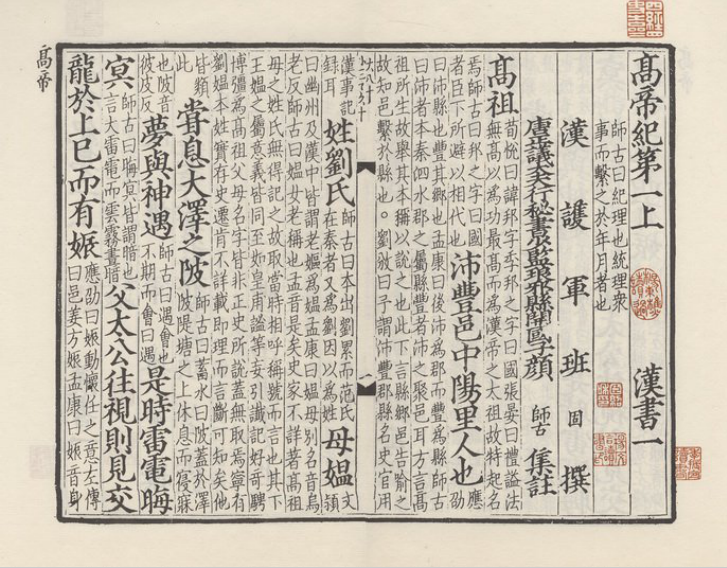 高帝紀第一上 師古曰紀理也統理衆事而繫之於年月者也 漢書一
漢護軍班固撰
唐正議大夫行秘書少監琅邪縣開國子顏師古集註
高祖 荀悅曰諱邦字季邦之字曰國張晏曰禮謚法無高以為功最高而為漢帝之太祖故特起名
焉師古曰邦之字曰國者臣下所避以相代也 沛豐邑中陽里人也 應劭
曰沛縣也豐其鄉也孟康曰後沛為郡而豐為縣師古曰沛者本秦泗水郡之屬縣豐者沛之聚邑耳方言高
祖所生故舉其本稱以說之也此下言縣鄉邑告喻之故知邑繫於縣也。劉攽曰予謂沛豐郡縣名史官用
漢事記錄耳 姓劉氏 師古曰本出劉累而范氏在秦者又為劉因以為姓 母媼 文穎
曰幽州及漢中皆謂老嫗為媼孟康曰媼母別名音烏老反師古曰媼女老稱也孟音是矣史家不詳著高祖
母之姓氏無得記之故取當時相呼稱號而言也其下王媼之屬意義皆同至如皇甫謐等妄引讖記好奇騁
博彊為高祖父母名字皆非正史所說蓋無取焉寧有劉媼本姓實存史遷肯不詳載即理而言斷可知矣他
皆類此 甞息大澤之陂 師古曰蓄水曰陂蓋於澤陂隄塘之上休息而寢寐
也陂音彼皮反 夢與神遇 師古曰遇會也不期而會曰遇 是時雷電晦
冥 師古曰晦冥皆謂暗也言大雷電而雲霧晝暗 父太公往視則見交
龍於上已而有娠 應劭曰娠動懷任之意左傳曰邑姜方娠孟康曰娠音身
高帝